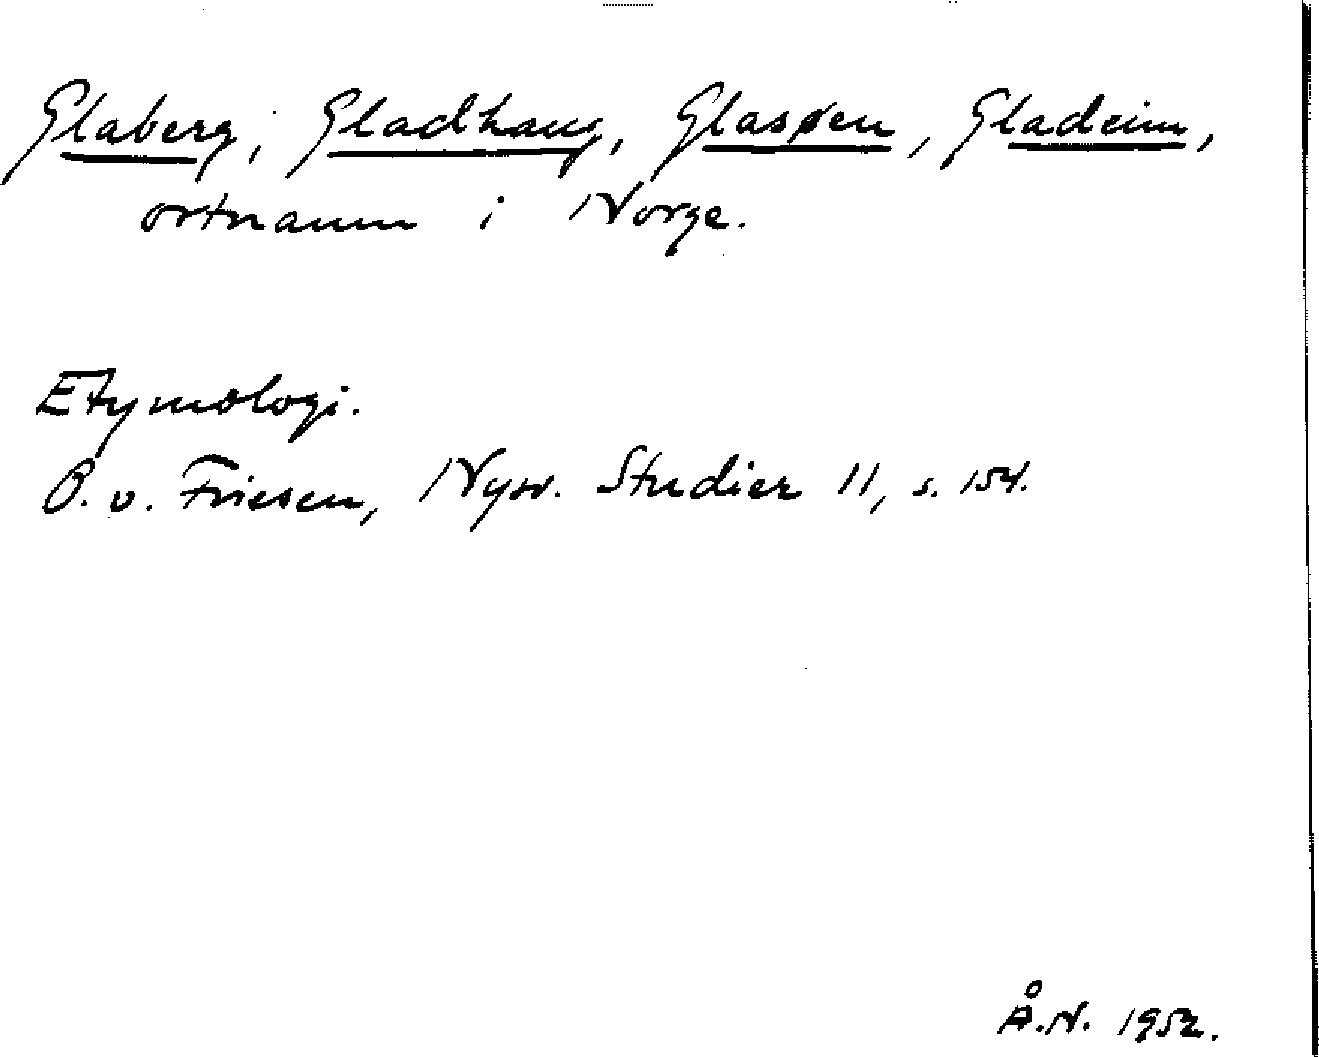 Glaberg, Gladhaug, Glasøen, Gladeim,
ortnamn i Norge.
Etymologi.
O. v. Friesen, Nysv. Studier 11, s. 154.
Å.N. 1952.